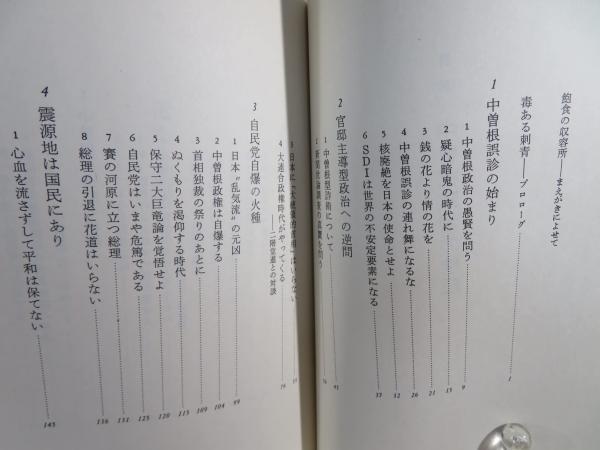 飽食の収容所――まえがきによせて
毒ある刺青――プロローグ 1
1 中曽根誤診の始まり
1 中曽根政治の愚賢を問う 9
2 疑心暗鬼の時代に 15
3 銭の花より情の花を 21
4 中曽根誤診の連れ舞になるな 26
5 核廃絶を日本の使命とせよ 32
6 SDIは世界の不安定要素になる 37
2 官邸主導型政治への逆問
1 中曽根型詐術について
4 大連合政権時代がやってくる
――二階堂進との対談 79
3 自民党自爆の火種
1 日本“乱気流”の元凶 99
2 中曽根政権は自爆する 104
3 首相独裁の祭りのあとに 109
4 ぬくもりを渇仰する時代 115
5 保守二大巨竜論を覚悟せよ 120
6 自民党はいまや危篤である 125
7 賽の河原に立つ総理 131
8 総理の引退に花道はいらない 136
4 震源地は国民にあり
1 心血を流さずして平和は保てない 145